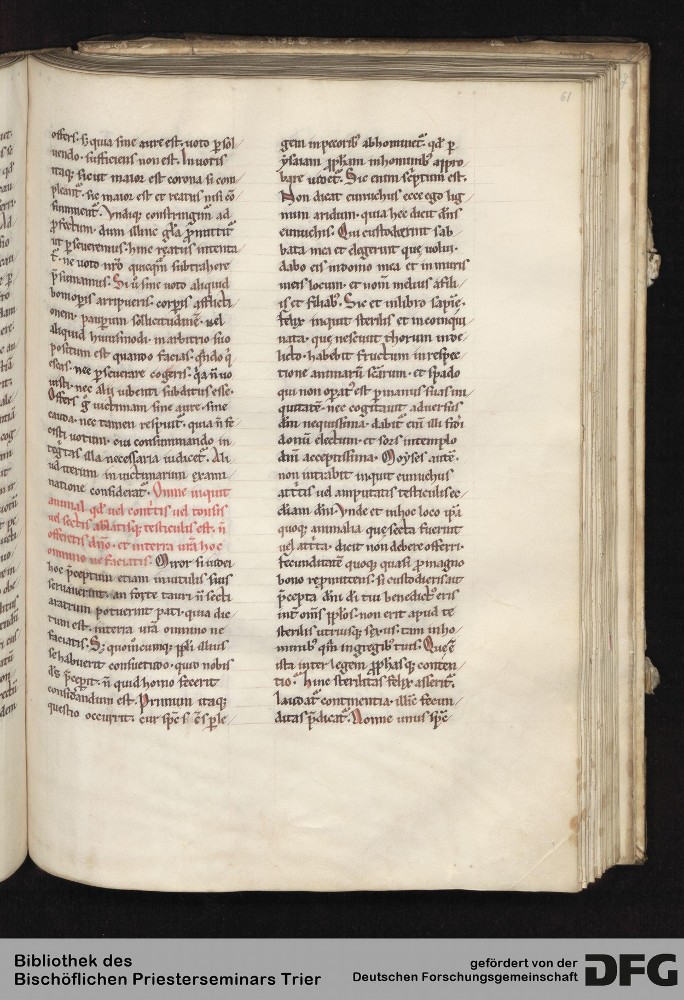 61
offers. s; quia sine aure est. uoto ꝑsol
uendo. sufficiens non est. In uotis
itaq; sicut maior est corona si com
pleant᷑. sic maior est et reatus nisi cō
summent᷑. Vndiq; constringim᷒ ad
ꝑfectum. dum illinc gl̄a ꝓmittit᷑
ut ꝑseueremus. hinc reatus intenta
t᷑. ne uoto nr̄o quicqm̄ subtrahere
p̄sumamus. Si ū sine uoto aliquid
boni oꝑis arripueris. corꝑis afflicti
onem. pauꝑum sollicitudinē. uel
aliquid huiusmodi. in arbitrio tuo
positum est quando facias.
uisti. nec alii iubenti subditus esse.
Offers g̊ uictimam sine aure. sine
cauda. nec tamen respuit᷑. quia n̄ fe
cisti uotum. cui consummando in
tegritas illa necessaria iudicet᷑. Ali
ud iterum in uictimarum exami
natione considerat᷑. Omne inquit
animal qd̄ uel contritis uel tonsis
uel sectis ablatisq; testiculis est. n̄
offeretis dn̄o. et in terra urā hoc
omnino ne faciatis. Miror si iudei
hoc p̄ceptum etiam in utilib; suis
seruauerint. an forte tauri n̄ secti
aratrum potuerint pati. quia dic
tum est. in terra urā omnino ne
faciatis. S; quomcumq; ppl̄i illius
se habuerit consuetudo. quid nobis
ds̄ p̄cepit. n̄ quid homo fecerit
considandum est. Primum itaq;
questio occurrit. cur
gem in pecorib; abhominet᷑. qd̄ ꝑ
ysaiam ꝓph̄am in hominib; appro
bare uidet᷑. Sic enim sc̄ptum est.
Non dicat eunuchus ecce ego lig
num aridum. quia hec dicit dn̄s
eunuchis. Qui custodierint sab
bata mea et elegerint que uolui.
dabo eis in domo mea et in muris
meis locum. et nom̄ melius a fili
is et filiab;. Sic et in libro sapiē.
Felix inquit sterilis et incoinqui
nata. que nesciuit thorum in de
licto. habebit fructum in respec
tione animarū sc̄arum. et spado
qui non oꝑat᷒ est ꝑ manus suas ini
quitatē. nec cogitauit aduersus
dm̄ nequissima. dabit᷑ enī illi fidei
donū electum. et sors in templo
dn̄i acceptissima. Moyses autē.
non intrabit inquit eunuchus
attritis uel amputatis testiculis ec
cl̄iam dn̄i. Vnde et in hoc loco ip̄a
quoq; animalia que secta fuerint
uel attrita. dicit non debere offerri.
Fecunditatē quoq; quasi ꝓ magno
bono repmittens. si custodieris ait
p̄cepta dn̄i di tui benedict᷒ eris
int̄ om̄s ppl̄os. non erit apud te
sterilis utriusq; sexus. tam in ho
minib; qm̄ in gregib; tuis. Que ē
ista inter legem ꝓph̄asq; conten
tio. hinc sterilitas felix asserit᷑.
laudat᷑ continentia. illic fecun
ditas p̄dicat᷑. Nonne unus spē
Bibliothek des
Bischöflichen Priesterseminars Trier
gefördert von der
Deutschen Forschungsgemeinschaft
DFG